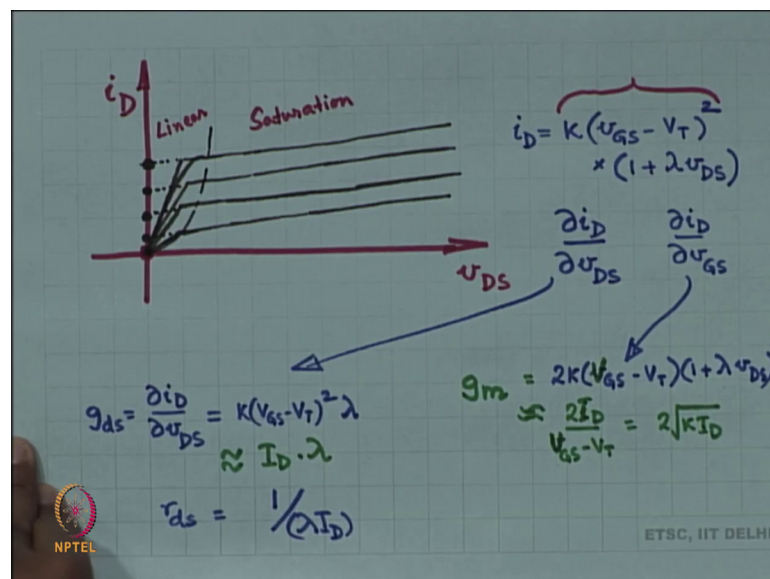 i_D
Linear
Saturation
v_DS
i_D = K(v_GS - V_T)^2
× (1 + λ v_DS)
∂i_D/∂v_DS
∂i_D/∂v_GS
g_ds = ∂i_D/∂v_DS = K(V_GS - V_T)^2 λ
≈ I_D · λ
r_ds = 1/(λI_D)
g_m = 2K(V_GS - V_T)(1 + λ v_DS)
≈ 2I_D/(V_GS - V_T) = 2√(K I_D)
NPTEL
ETSC, IIT DELHI